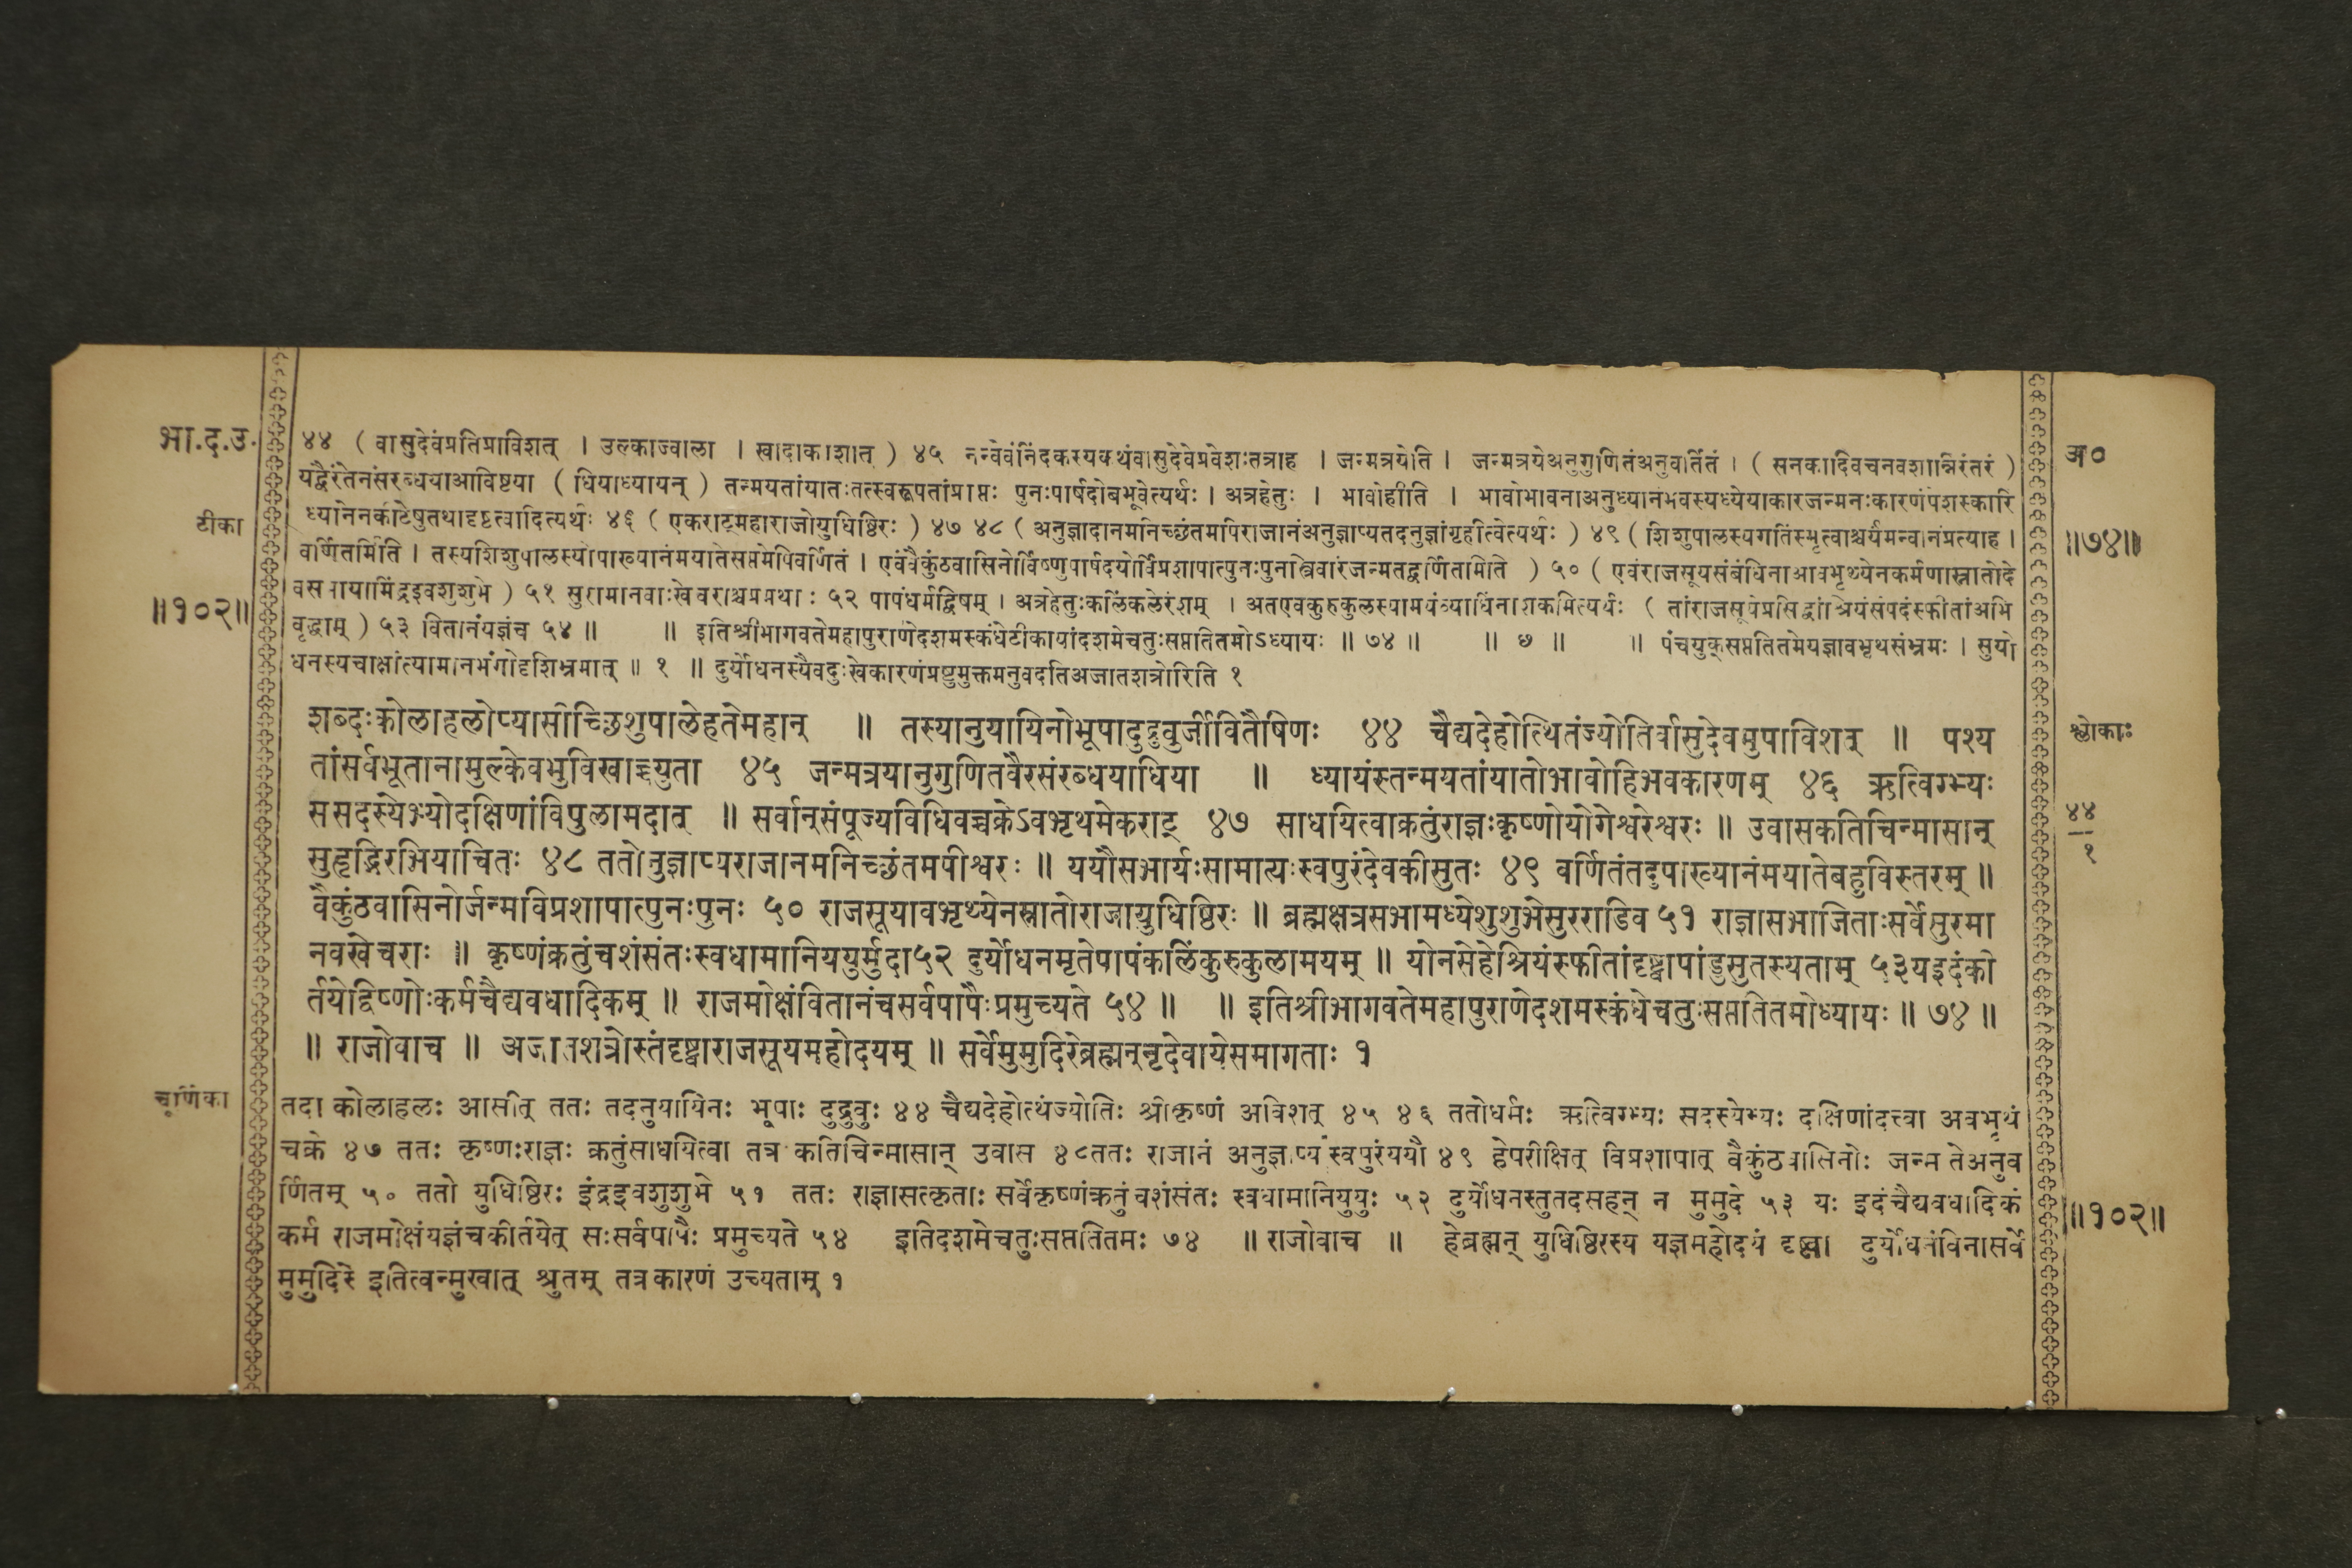 भा.द.उ.
टीका
॥१०२॥
४४ ( वासुदेवंप्रतिप्राविशत् । उल्काज्वाला । खादाकाशात् ) ४५ नन्वेवंनिंदकस्यकथंवासुदेवेप्रवेशःतत्राह । जन्मत्रयेति । जन्मत्रयेअनुगुणितंअनुवर्तितं । ( सनकादिवचनवशान्निरंतरं )
यद्वैरंतेनसंरब्धयाआविष्टया ( धियाध्यायन् ) तन्मयतांयातःतत्स्वरूपतांप्राप्तः पुनःपार्षदोबभूवेत्यर्थः । अत्रहेतुः । भावोहीति । भावोभावनाअनुध्यानंभवस्यध्येयाकारजन्मनःकारणंपेशस्कारि
ध्यानेनकीटेषुतथादृष्टत्वादित्यर्थः ४६ ( एकराट्महाराजोयुधिष्ठिरः ) ४७ ४८ ( अनुज्ञादानमनिच्छंतमपिराजानंअनुज्ञाप्यतदनुज्ञांगृहीत्वेत्यर्थः ) ४९ ( शिशुपालस्यगतिंस्मृत्वाश्चर्यमन्वानंप्रत्याह ।
वर्णितमिति । तस्यशिशुपालस्योपाख्यानंमयातेसप्तमेपिवर्णितं । एवंवैकुंठवासिनोर्विष्णुपार्षदयोर्विप्रशापात्पुनःपुनास्त्रिवारंजन्मतद्वर्णितमिति ) ५० ( एवंराजसूयसंबंधिनाआवभृथ्येनकर्मणास्नातोदे
वसभायामिंद्रइवशुशुभे ) ५१ सुरामानवाःखेचराश्चप्रमथाः ५२ पापंधर्मद्विषम् । अत्रहेतुःकलिंकलेरंशम् । अतएवकुरुकुलस्यामयंव्याधिंनाशकमित्यर्थः ( तांराजसूयेप्रसिद्धांश्रियंसंपदंस्फीतांअभि
वृद्धाम् ) ५३ वितानंयज्ञंच ५४ ॥ ॥ इतिश्रीभागवतेमहापुराणेदशमस्कंधेटीकायांदशमेचतुःसप्ततितमोऽध्यायः ॥ ७४ ॥ ॥ छ ॥ ॥ पंचयुक्सप्ततितमेयज्ञावभृथसंभ्रमः । सुयो
धनस्यचाक्षांत्यामानभंगोदृशिभ्रमात् ॥ १ ॥ दुर्योधनस्यैवदुःखेकारणंप्रष्टुमुक्तमनुवदतिअजातशत्रोरिति १
अ०
॥७४॥
शब्दःकोलाहलोप्यासीच्छिशुपालेहतेमहान् ॥ तस्यानुयायिनोभूपादुद्रुवुर्जीवितैषिणः ४४ चैद्यदेहोत्थितंज्योतिर्वासुदेवमुपाविशत् ॥ पश्य
तांसर्वभूतानामुल्केवभुविखाच्च्युता ४५ जन्मत्रयानुगुणितवैरसंरब्धयाधिया ॥ ध्यायंस्तन्मयतांयातोभावोहिभवकारणम् ४६ ऋत्विग्भ्यः
ससदस्येभ्योदक्षिणांविपुलामदात् ॥ सर्वान्संपूज्यविधिवच्चक्रेऽवभृथमेकराट् ४७ साधयित्वाक्रतुंराज्ञःकृष्णोयोगेश्वरेश्वरः ॥ उवासकतिचिन्मासान्
सुहृद्भिरभियाचितः ४८ ततोनुज्ञाप्यराजानमनिच्छंतमपीश्वरः ॥ ययौसभार्यःसामात्यःस्वपुरंदेवकीसुतः ४९ वर्णितंतदुपाख्यानंमयातेबहुविस्तरम् ॥
वैकुंठवासिनोर्जन्मविप्रशापात्पुनःपुनः ५० राजसूयावभृथ्येनस्नातोराजायुधिष्ठिरः ॥ ब्रह्मक्षत्रसभामध्येशुशुभेसुरराडिव ५१ राज्ञासभाजिताःसर्वेसुरमा
नवखेचराः ॥ कृष्णंक्रतुंचशंसंतःस्वधामानिययुर्मुदा५२ दुर्योधनमृतेपापंकलिंकुरुकुलामयम् ॥ योनसेहेश्रियंस्फीतांदृष्ट्वापांडुसुतस्यताम् ५३यइदंकी
र्तयेद्विष्णोःकर्मचैद्यवधादिकम् ॥ राजमोक्षंवितानंचसर्वपापैःप्रमुच्यते ५४ ॥ ॥ इतिश्रीभागवतेमहापुराणेदशमस्कंधेचतुःसप्ततितमोध्यायः ॥ ७४ ॥
॥ राजोवाच ॥ अजातशत्रोस्तंदृष्ट्वाराजसूयमहोदयम् ॥ सर्वेमुमुदिरेब्रह्मन्नृदेवायेसमागताः १
श्लोकाः
४४
१
चूर्णिका
तदा कोलाहलः आसीत् ततः तदनुयायिनः भूपाः दुद्रुवुः ४४ चैद्यदेहोत्थंज्योतिः श्रीकृष्णं अविशत् ४५ ४६ ततोधर्मः ऋत्विग्भ्यः सदस्येभ्यः दक्षिणांदत्त्वा अवभृथं
चक्रे ४७ ततः कृष्णःराज्ञः क्रतुंसाधयित्वा तत्र कतिचिन्मासान् उवास ४८ततः राजानं अनुज्ञाप्य स्वपुरंययौ ४९ हेपरीक्षित् विप्रशापात् वैकुंठवासिनोः जन्म तेअनुव
र्णितम् ५० ततो युधिष्ठिरः इंद्रइवशुशुभे ५१ ततः राज्ञासत्कृताः सर्वेकृष्णंक्रतुंचशंसंतः स्वधामानियुयुः ५२ दुर्योधनस्तुतदसहन् न मुमुदे ५३ यः इदंचैद्यवधादिकं
कर्म राजमोक्षंयज्ञंचकीर्तयेत् सःसर्वपापैः प्रमुच्यते ५४ इतिदशमेचतुःसप्ततितमः ७४ ॥ राजोवाच ॥ हेब्रह्मन् युधिष्ठिरस्य यज्ञमहोदयं दृष्ट्वा दुर्योधनंविनासर्वे
मुमुदिरे इतित्वन्मुखात् श्रुतम् तत्रकारणं उच्यताम् १
॥१०२॥